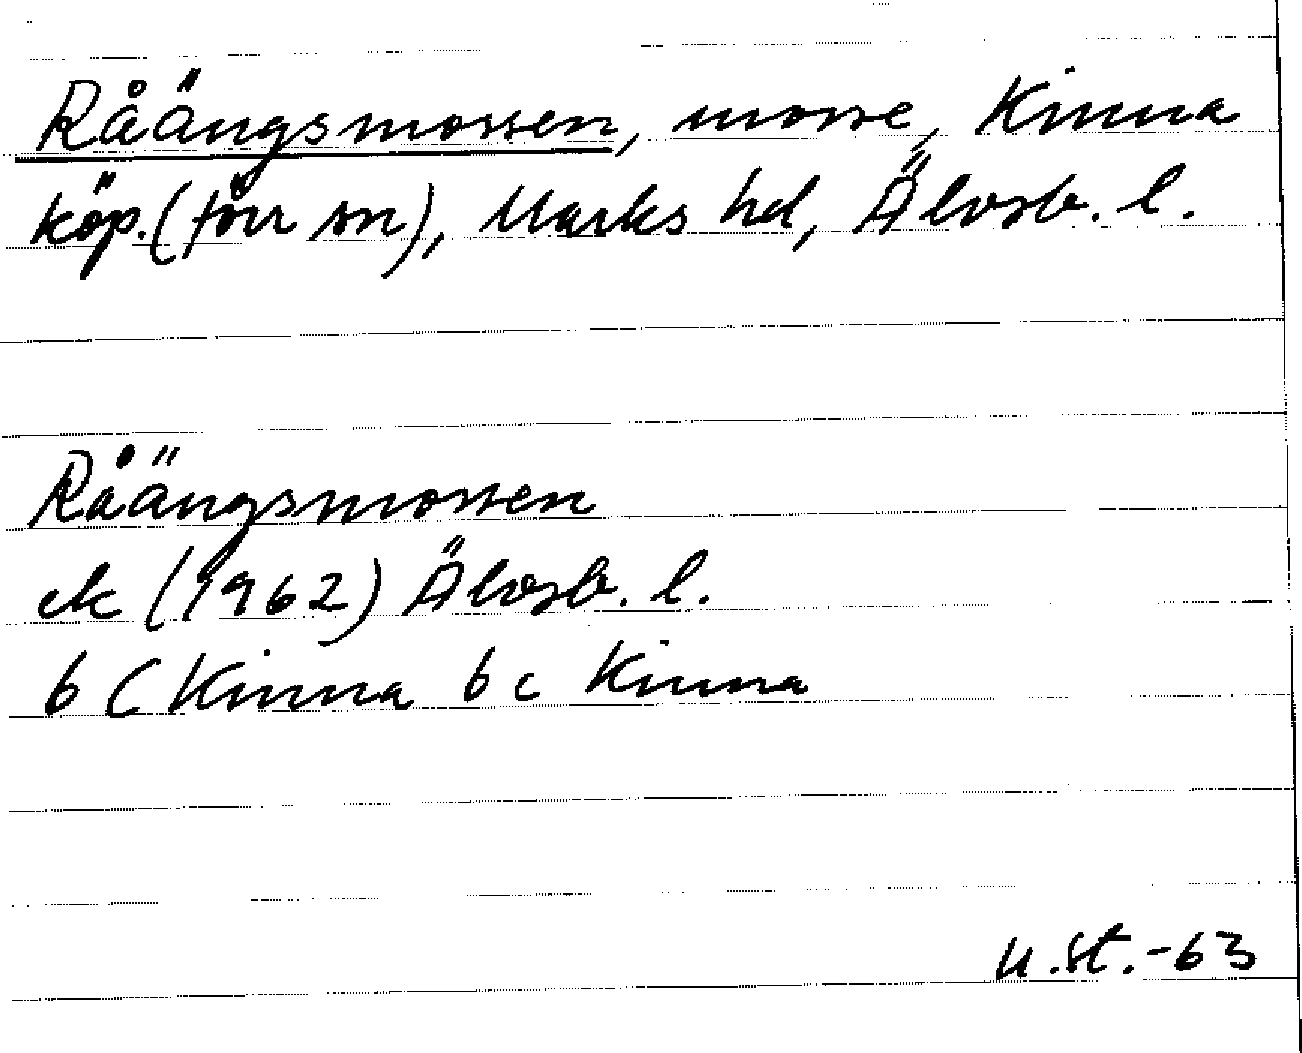 Råängsmossen, mosse, Kinna
köp. (förr sn), Marks hd, Älvsb. l.
Råängsmossen
ek (1962) Älvsb. l.
6 C Kinna 6 c Kinna
U.St.-63